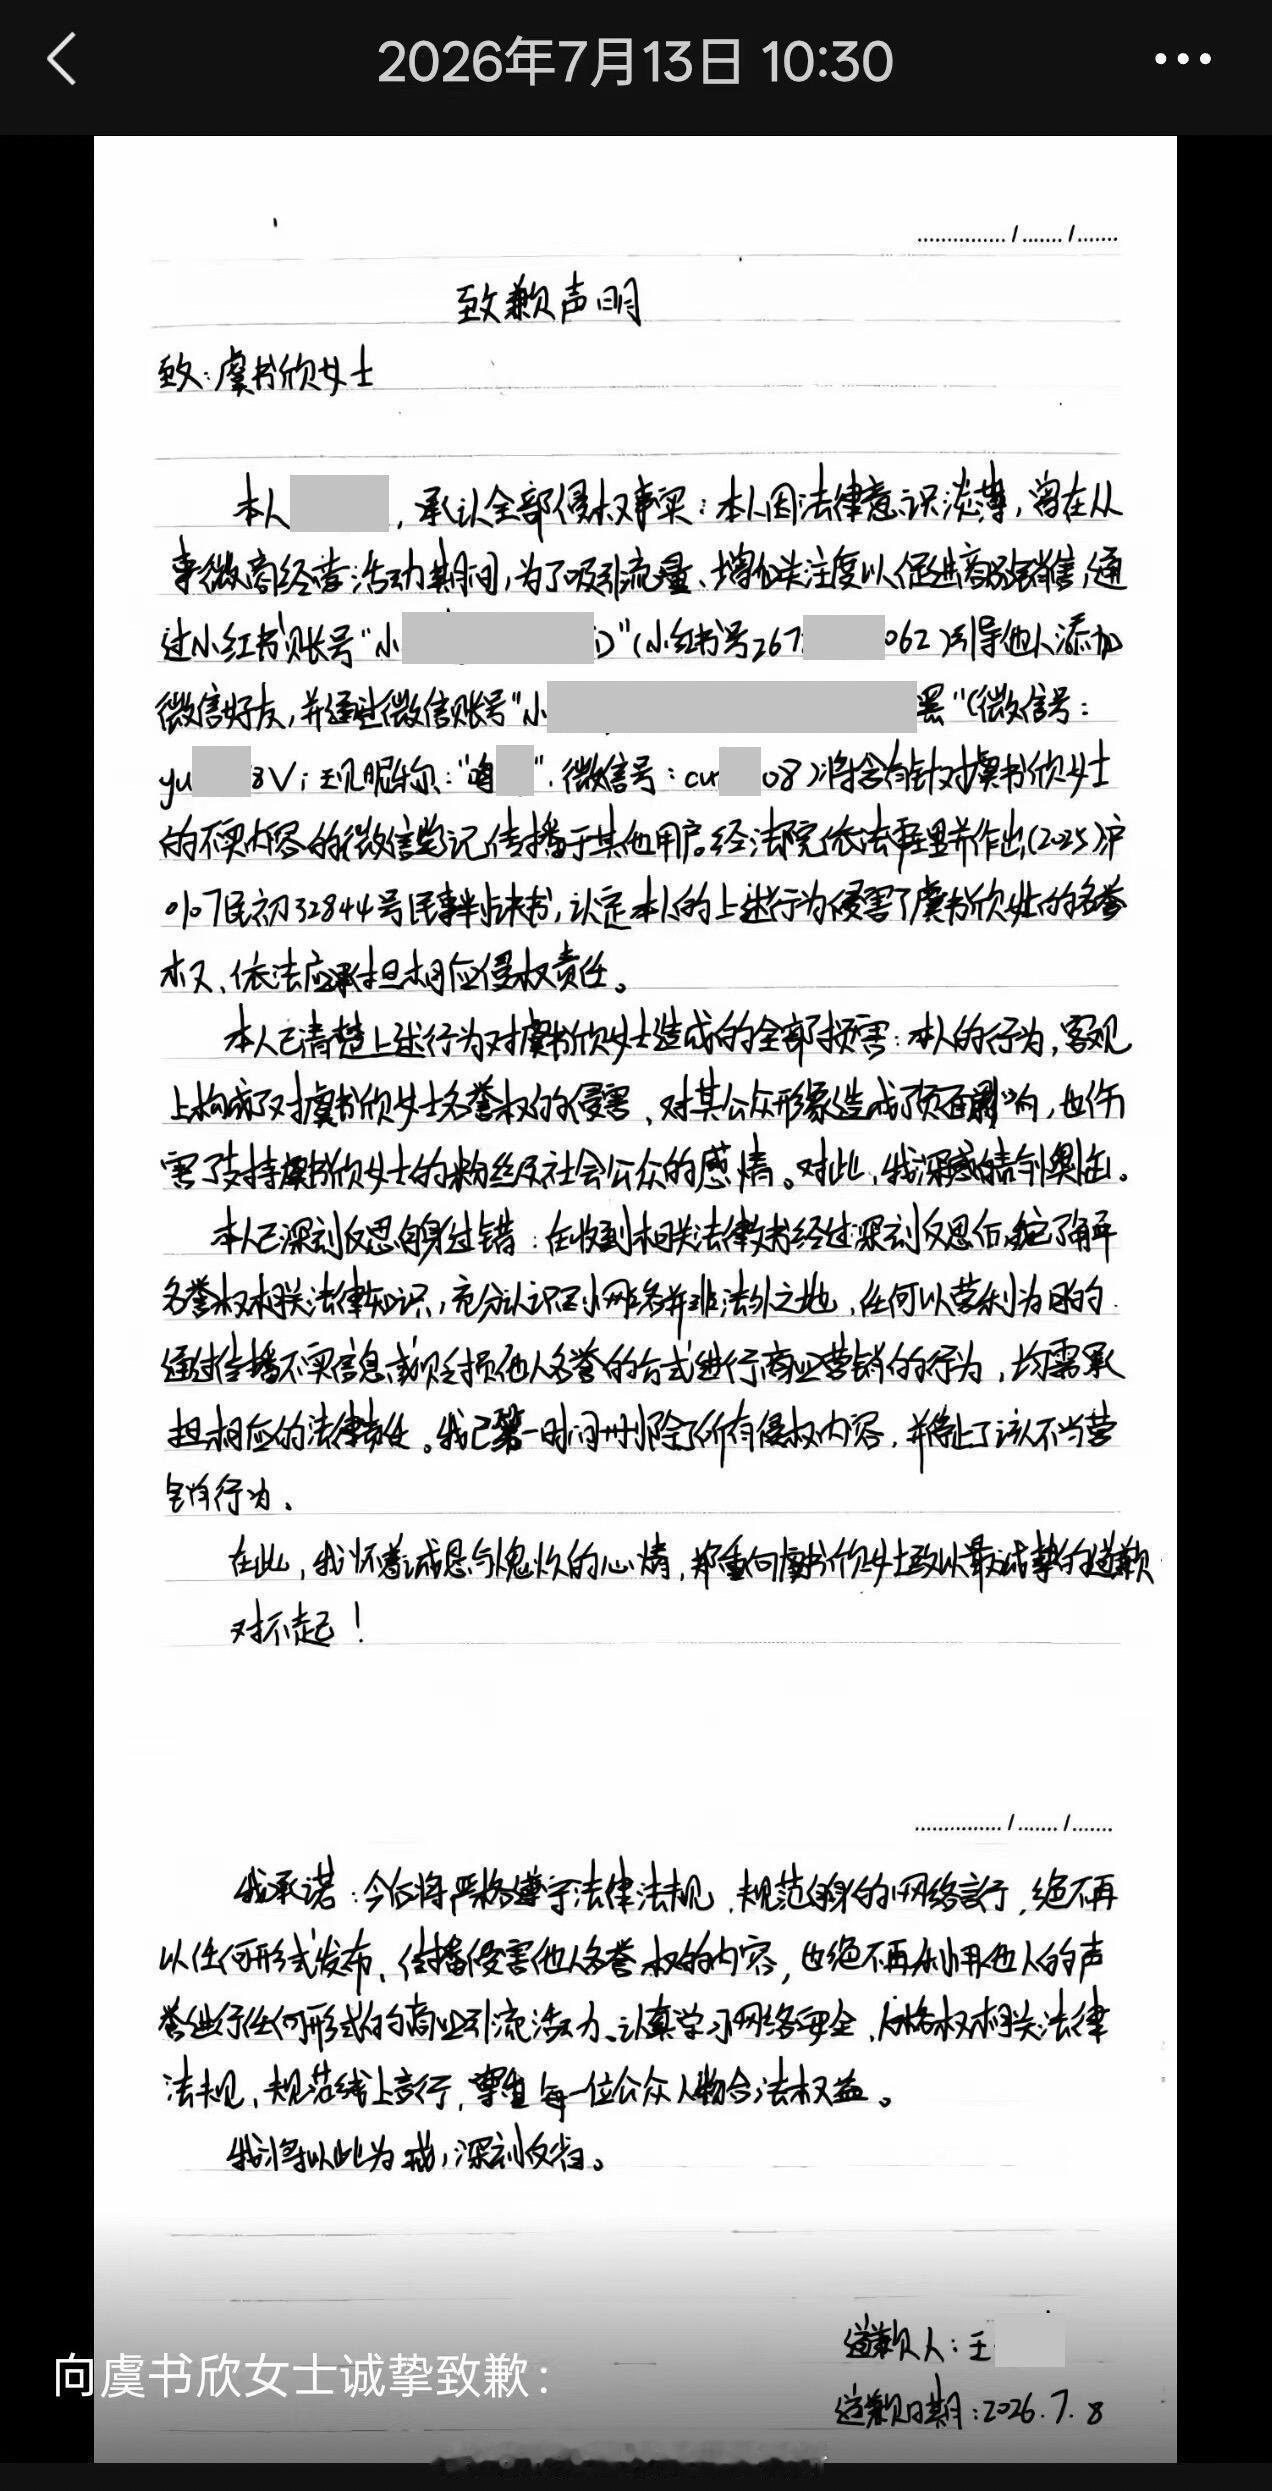 2026年7月13日 10:30
致歉声明
致：虞书欣女士
本人，承认全部侵权事实：本人因法律意识淡薄，曾在从
事微商经营活动期间，为了吸引流量、增加关注度以促进商品销售，通
过小红书账号“小”（小红书号267062）引导他人添加
微信好友，并通过微信账号“小罢”（微信号：
yu8Vi 现昵称：“”．微信号：cu08）将含有针对虞书欣女士
的不实内容的微信笔记传播于其他用户。经法院依法审理并作出（2025）沪
0107民初32844号民事判决书，认定本人的上述行为侵害了虞书欣女士的名誉
权、依法应承担相应侵权责任。
本人已清楚上述行为对虞书欣女士造成的全部损害：本人的行为，客观
上构成了对虞书欣女士名誉权的侵害、对其公众形象造成了负面影响，也伤
害了支持虞书欣女士的粉丝及社会公众的感情。对此，我深感。
本人已深刻反思自身过错：在收到相关法律文书经过深刻反思后，了解
名誉权相关法律知识，充分认识到网络并非法外之地、任何以营利为目的
通过传播不实信息或贬损他人名誉的方式进行商业营销的行为，均需承
担相应的法律责任。我已第一时间删除了所有侵权内容，并停止了该不当营
销行为。
在此，我怀着诚恳与愧疚的心情，郑重向虞书欣女士致以最诚挚的道歉
对不起！
我承诺：今后将严格遵守法律法规、规范自身的网络言行，绝不再
以任何形式发布、传播侵害他人名誉权的内容，也绝不再利用他人的声
誉进行任何形式的商业引流活动、认真学习网络安全、人格权相关法律
法规、规范线上言行，尊重每一位公众人物合法权益。
我将以此为戒，深刻反省。
道歉人：王
道歉日期：2026.7.8
向虞书欣女士诚挚致歉：